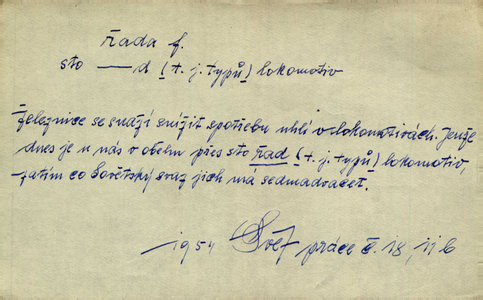 řada f.
sto —— d (t. j. typů) lokomotiv
Železnice se snaží snížit spotřebu uhlí v lokomotivách. Jenže
dnes je u nás v oběhu přes sto řad (t. j. typů) lokomotiv,
zatím co Sovětský svaz jich má sedmadvacet.
1954 Svět práce č. 18, 11 b